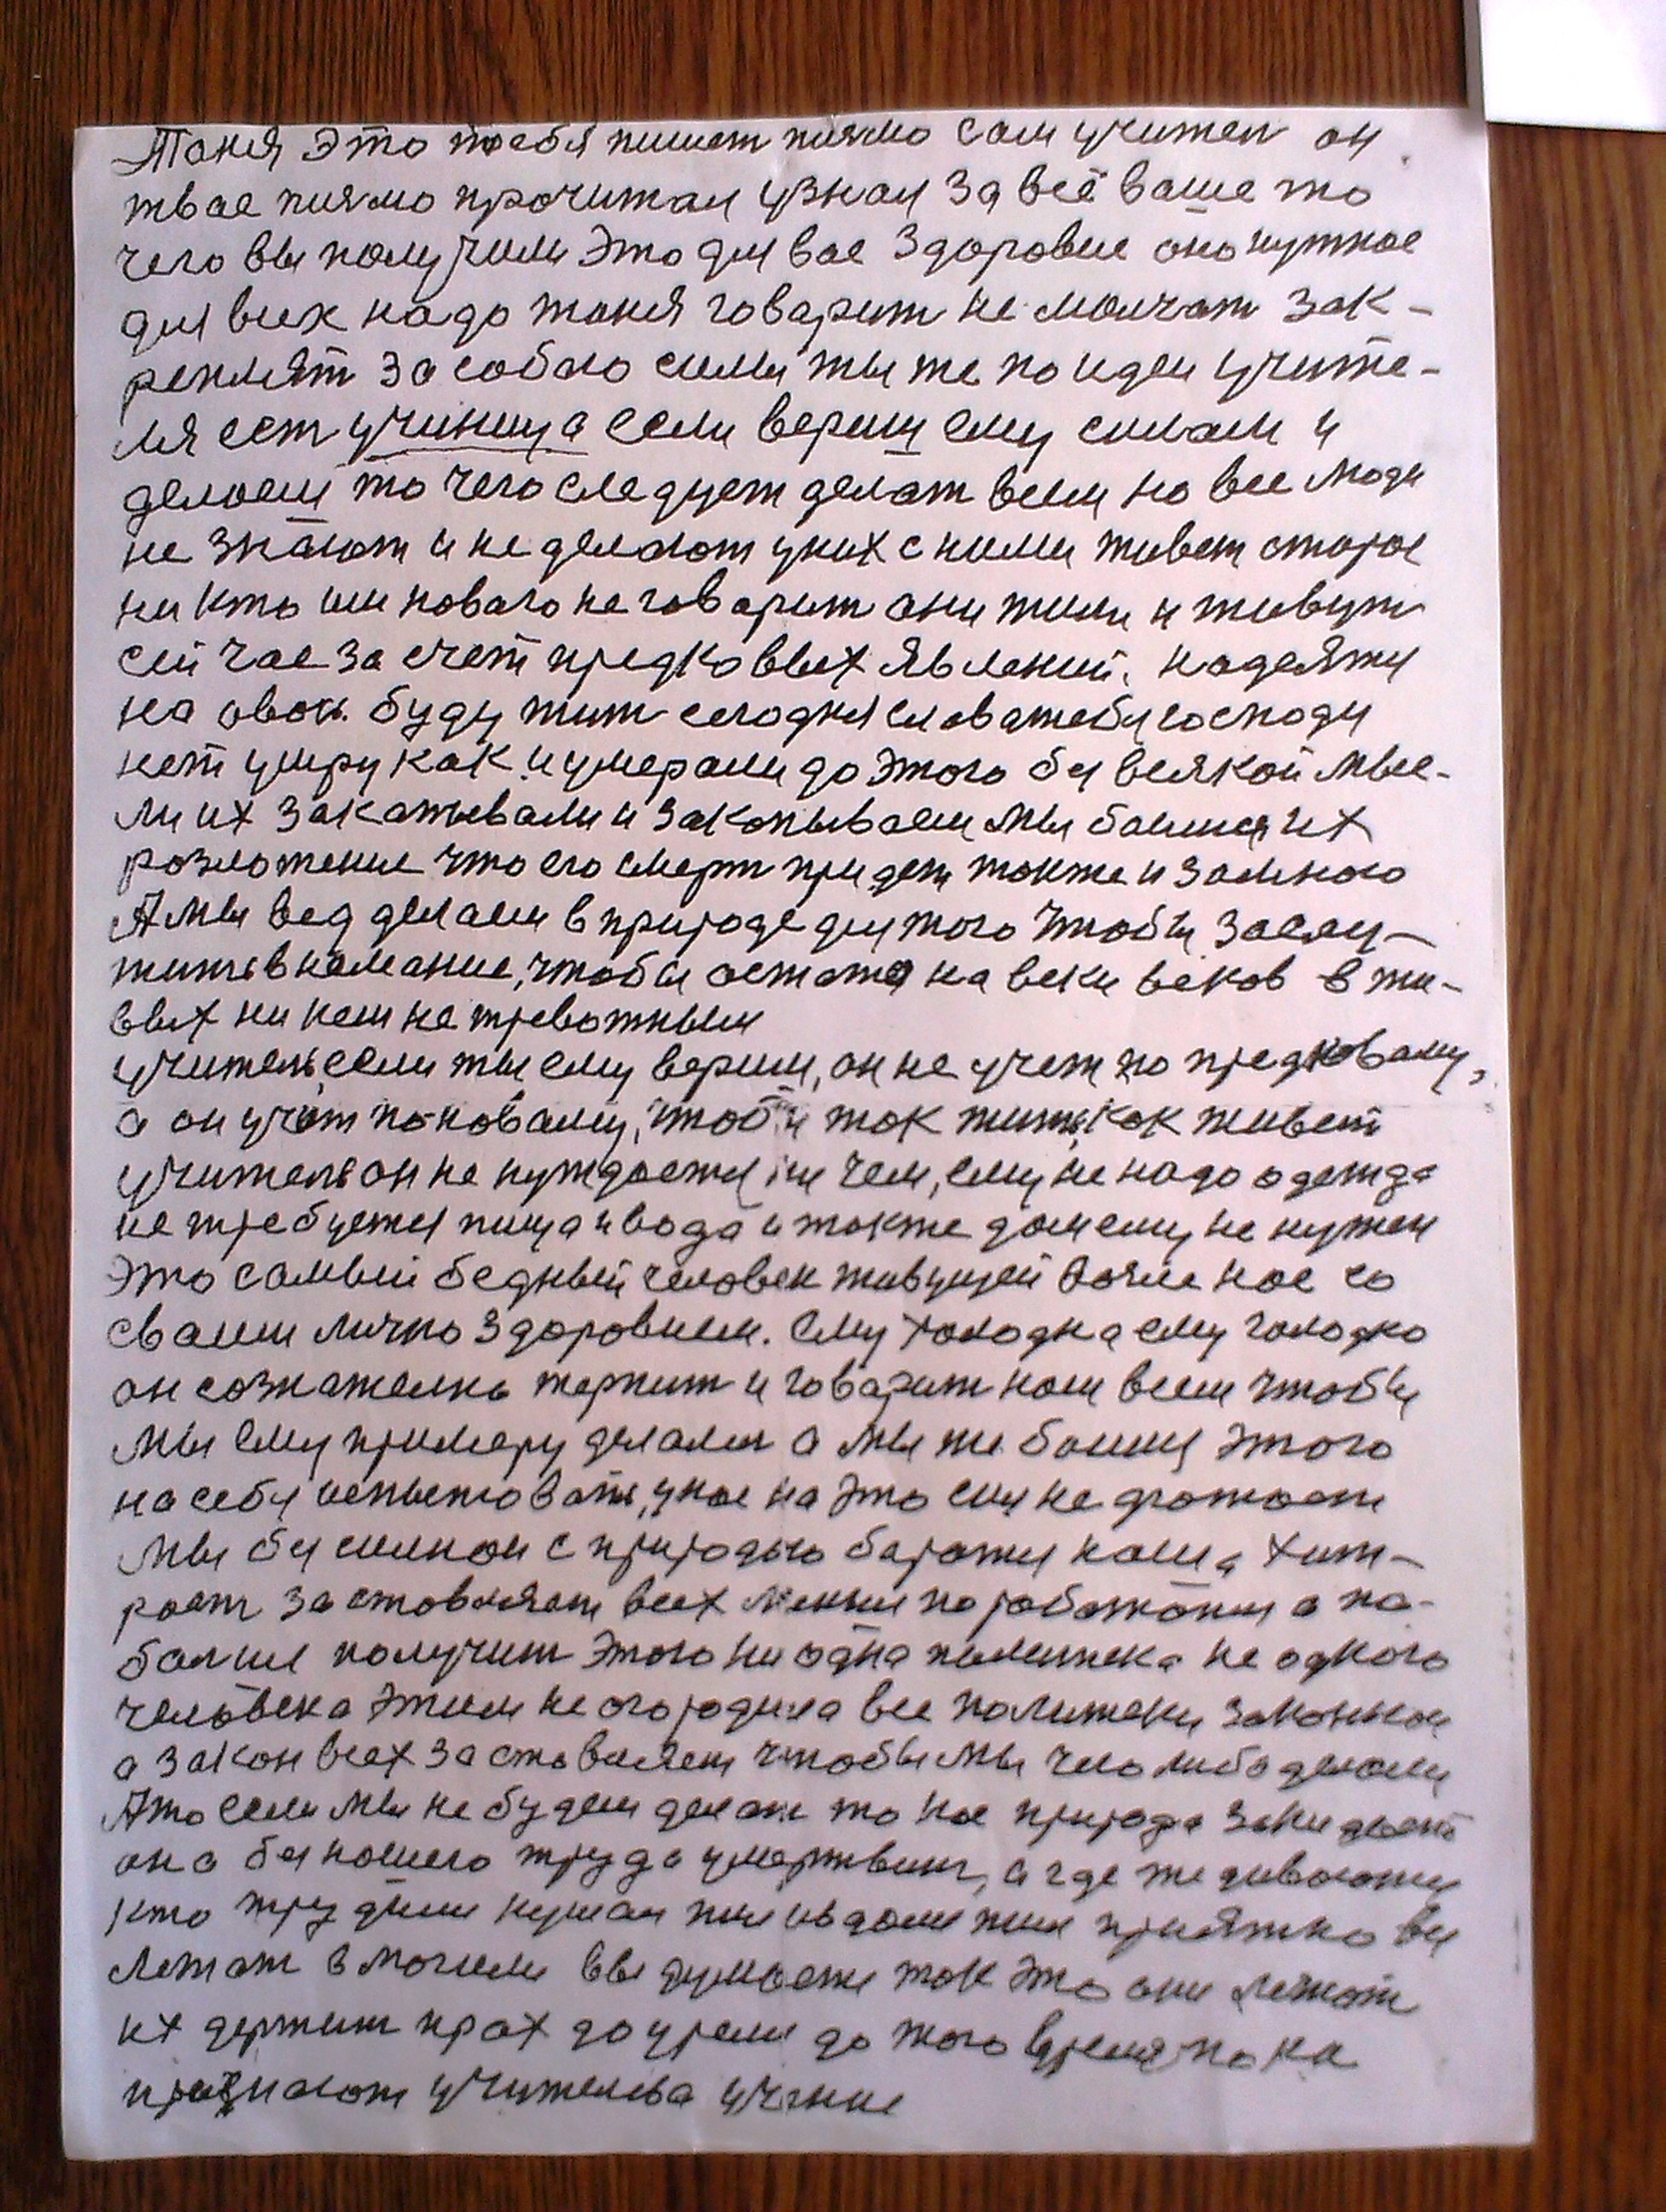 Таня это тебя пишет письмо сам учител он
твае письмо прочитал узнал за всё ваше то
чего вы получили это для вас здоровие оно нужное
для всех надо таня говарит не молчат зак-
реплят за собаю силы ты же по идеи учите-
ля ест ученица если вериш ему силам и
делаеш то чего следует делат всем но все люди
не знают и не делают у них с ними живет старое
ни кто им новаго не говарит они жили и живут
сей час за счет предковвых явлений. надеятся
на авось. буду жит сегодня слова тебя господи
нет умру как и умерали до этого без всякой мыс-
ли их закатывали и закопываем мы боимся их
розложение что его смерт придет также и за мною
А мы вед делаем в природе для того чтобы заслу-
жить внемание, чтобы остатся на веки веков в жи-
ввых ни кем не тревожным
учитель, если ты ему вериш, он не учет по предковаму,
а он учёт по-новаму, чтобы так жить, как живет
учитель он не нуждается ни чем, ему не надо одежда
не требуется пища и вода и также дом ему не нужен
Это самый бедный человек живущей возле нас со
сваим лично здоровием. Ему холодна ему голодно
он сознателно терпит и говарит нам всем чтобы
мы ему примеру делали а мы же боимся этого
на себя испытовать, у нас на это сил не хватает
мы без силном с природаю баратся наша хит-
рост заставляет всех менши поработати а по-
болши получит этого ни одна политека не одного
человека этим не огородила все политеки законное
а закон всех заставляет чтобы мы чего либо делали
А то если мы не будем делат то нас природа закидает
она без нашего труда умертвит, а где же деваются
кто трудилси кушал пил в доме жил приятно вси
лежат в могили вы думаете так это они лежат
их держит прах до уреми до того время пока
празнают учителева учение